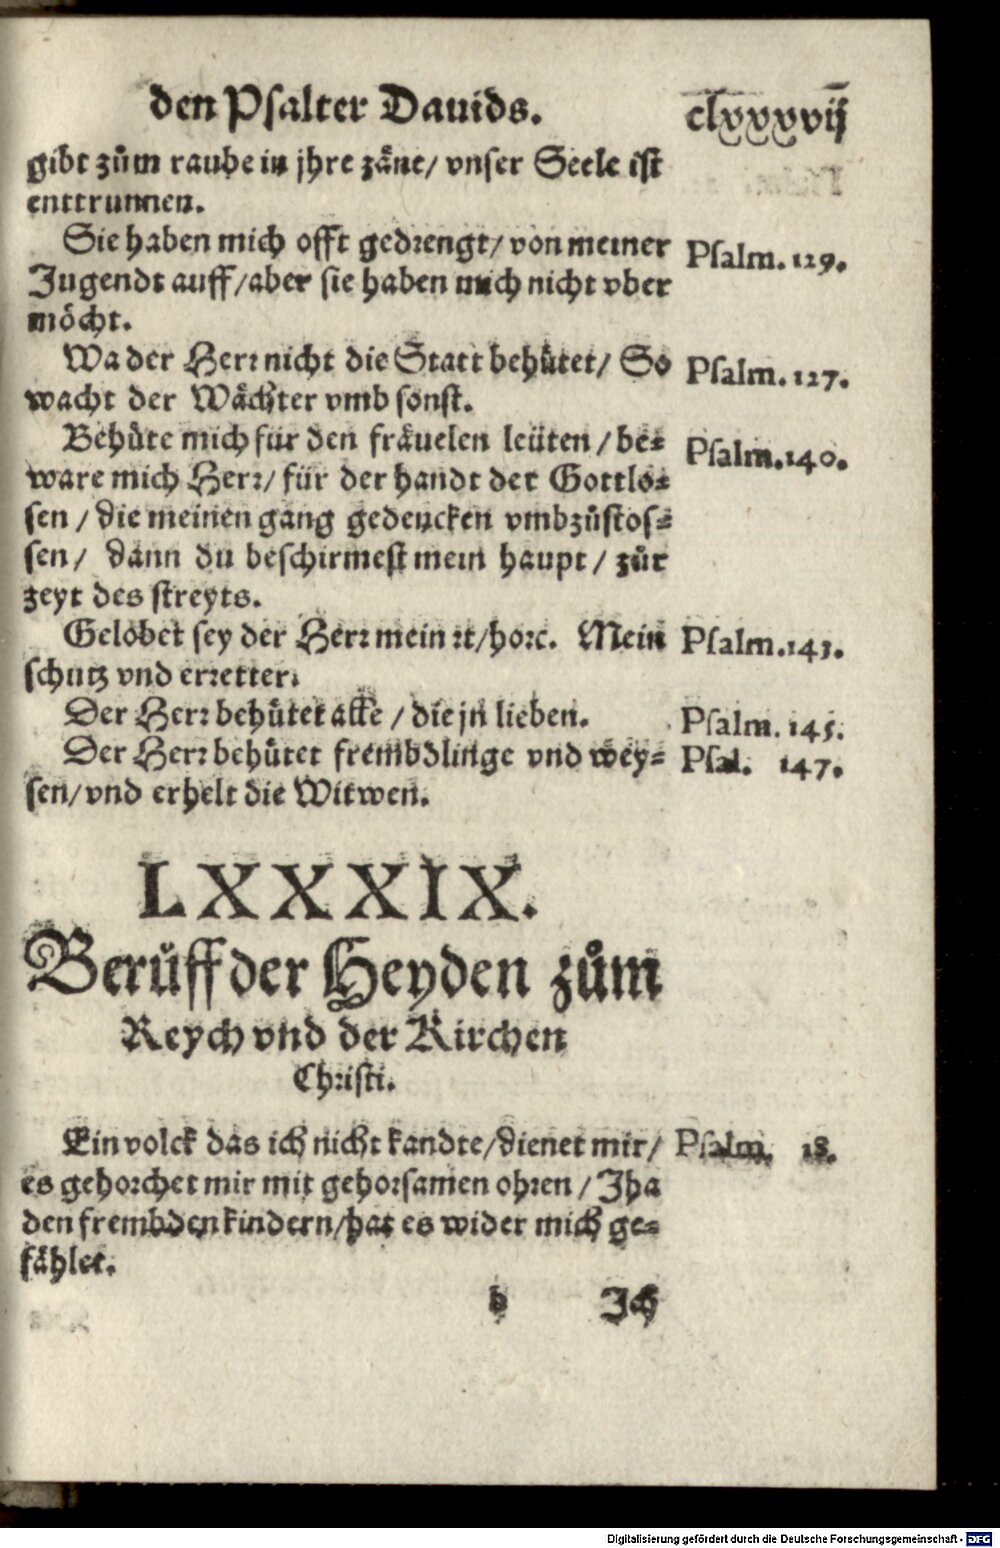 den Psalter Dauids. clxxxvij
gibt zům raube in jhre zäne/ vnser Seele ist
enttrunnen.
Sie haben mich offt gedrengt/ von meiner Psalm. 129.
Jugendt auff/aber sie haben mich nicht vber
möcht.
Wa der Herr nicht die Statt behütet/ So Psalm. 127.
wacht der Wächter vmb sonst.
Behüte mich für den fräuelen leüten/be= Psalm. 140.
ware mich Herr/ für der handt der Gottlo=
sen / die meinen gang gedencken vmbzůstos=
sen/ dann du beschirmest mein haupt / zůr
zeyt des streyts.
Gelobet sey der Herr mein rc/horc. Mein Psalm. 143.
schutz vnd erretter.
Der Herr behütet alle / die jn lieben. Psalm. 145.
Der Herr behütet frembdlinge vnd wey= Psal. 147.
sen/vnd erhelt die Witwen.
LXXXIX.
Berüff der Heyden zům
Reych vnd der Kirchen
Christi.
Ein volck das ich nicht kandte/dienet mir/ Psalm. 18.
es gehorchet mir mit gehorsamen ohren / Jha
den frembden kindern/hat es wider mich ge=
fählet.
b Ich
Digitalisierung gefördert durch die Deutsche Forschungsgemeinschaft - DFG